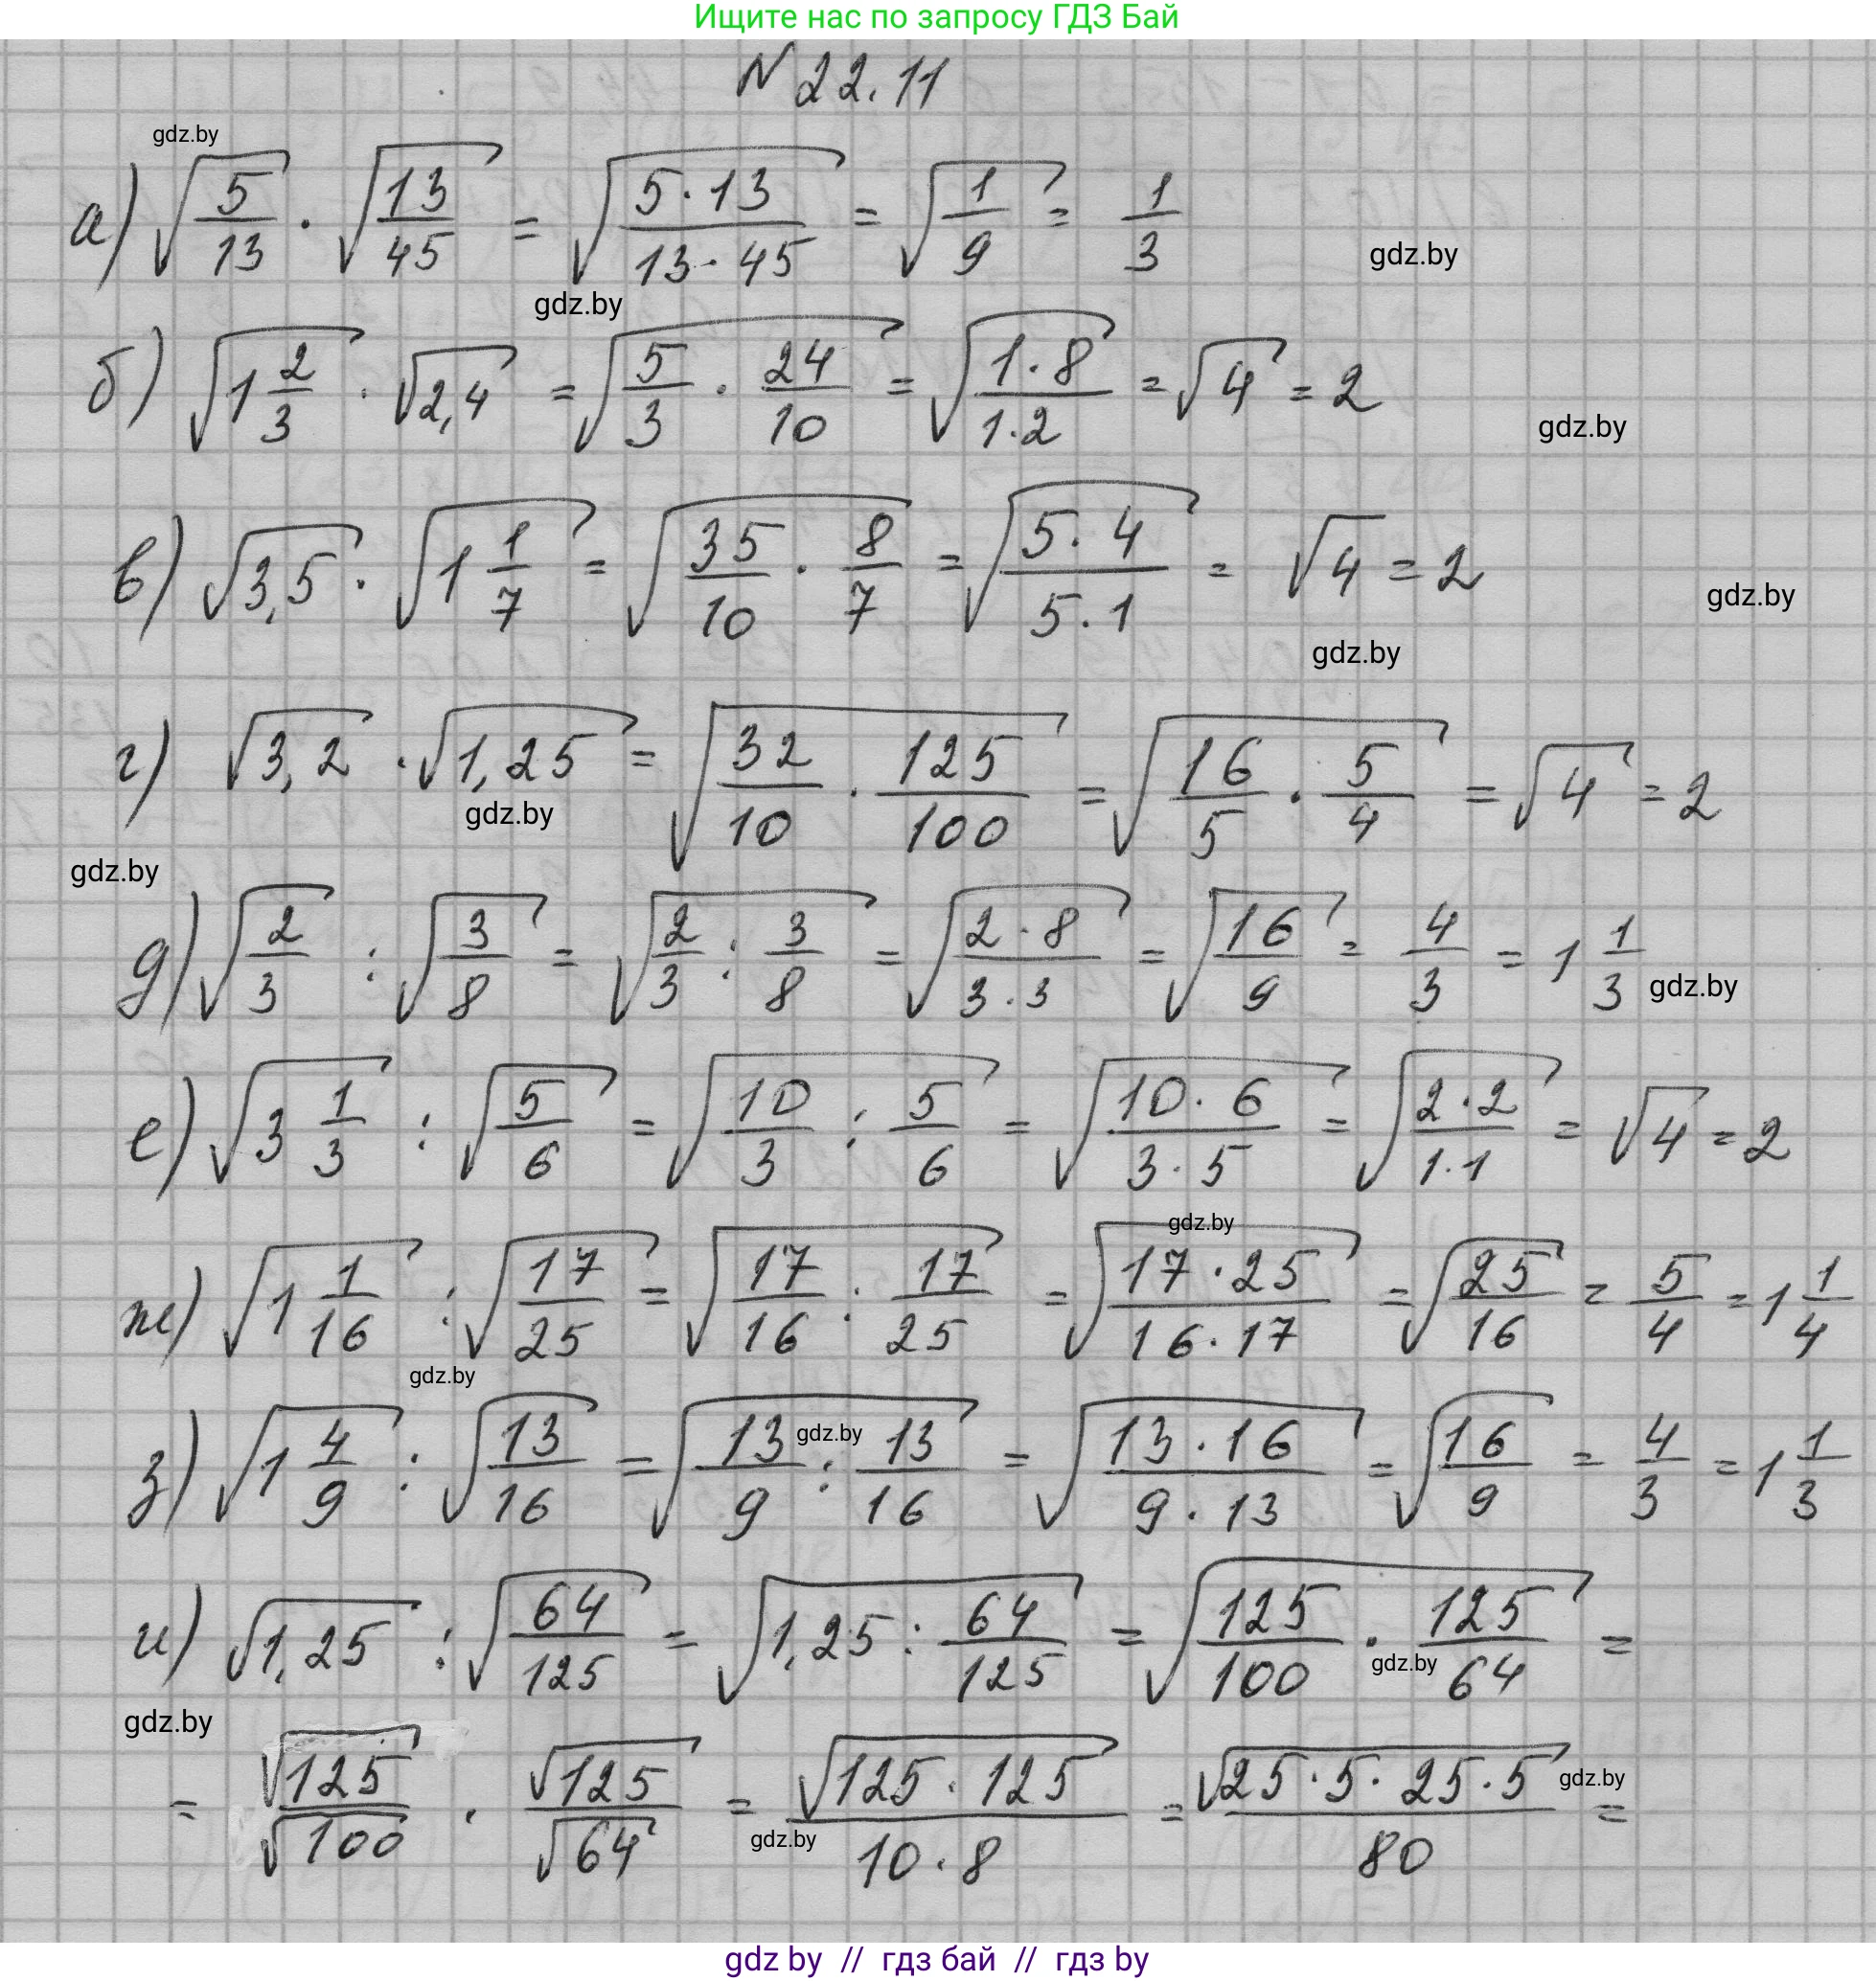 Ищите нас по запросу ГДЗ Бай
N 22.11
gdz.by
а) √(5/13) · √(13/45) = √((5·13)/(13·45)) = √(1/9) = 1/3
gdz.by
gdz.by
б) √(1 2/3) · √(2,4) = √(5/3 · 24/10) = √((1·8)/(1·2)) = √4 = 2
gdz.by
в) √(3,5) · √(1 1/7) = √(35/10 · 8/7) = √((5·4)/(5·1)) = √4 = 2
gdz.by
gdz.by
г) √(3,2) · √(1,25) = √(32/10 · 125/100) = √(16/5 · 5/4) = √4 = 2
gdz.by
gdz.by
д) √(2/3) : √(3/8) = √(2/3 : 3/8) = √((2·8)/(3·3)) = √(16/9) = 4/3 = 1 1/3
gdz.by
е) √(3 1/3) : √(5/6) = √(10/3 : 5/6) = √((10·6)/(3·5)) = √((2·2)/(1·1)) = √4 = 2
gdz.by
ж) √(1 1/16) : √(17/25) = √(17/16 : 17/25) = √((17·25)/(16·17)) = √(25/16) = 5/4 = 1 1/4
gdz.by
з) √(1 4/9) : √(13/16) = √(13/9 : 13/16) = √((13·16)/(9·13)) = √(16/9) = 4/3 = 1 1/3
gdz.by
и) √(1,25) : √(64/125) = √(1,25 : 64/125) = √(125/100 · 125/64) =
gdz.by
gdz.by
= √125/√100 · √125/√64 = √(125·125)/(10·8) = √(25·5·25·5)/80 =
gdz.by
gdz.by
gdz by // гдз бай // гдз by